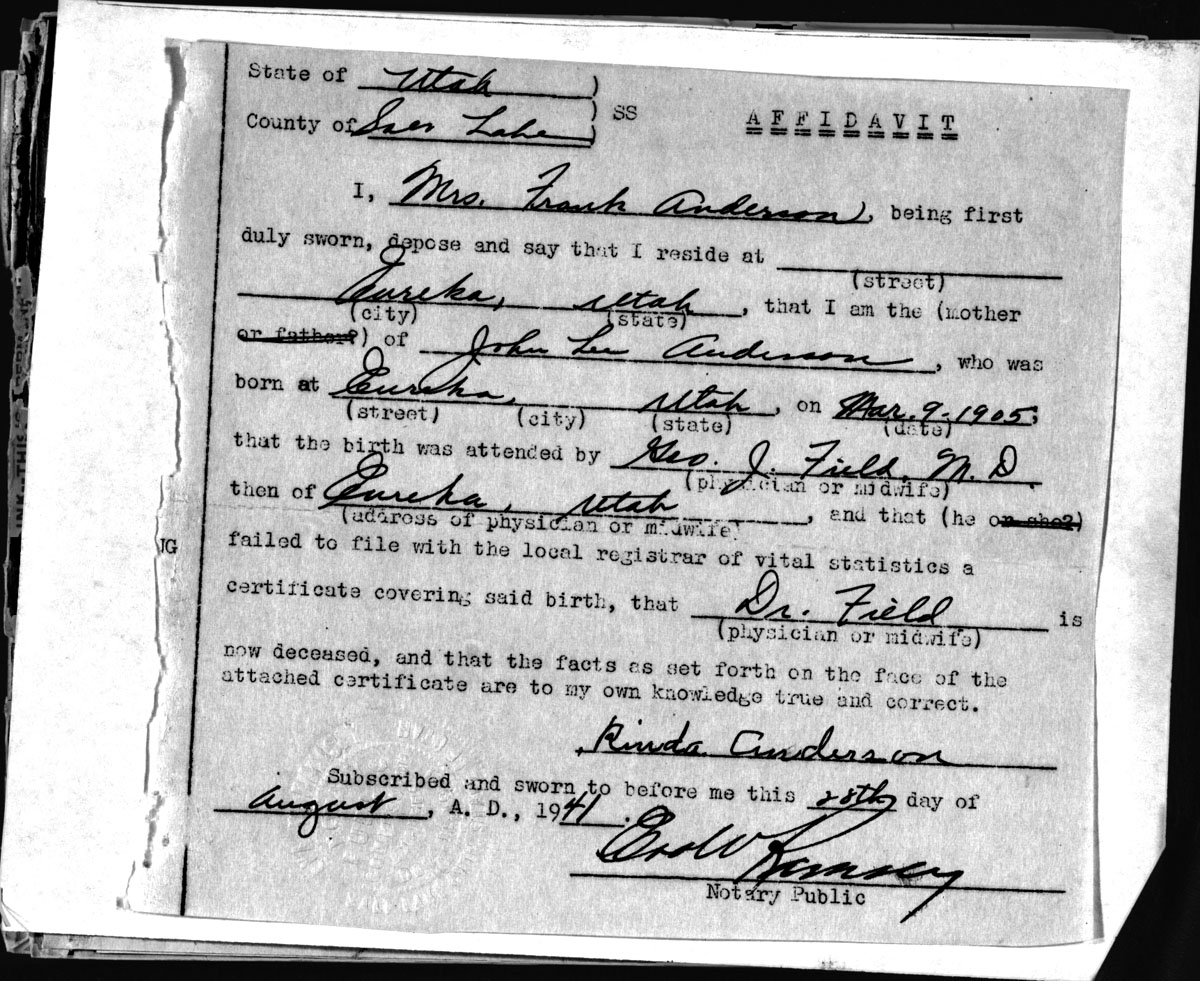 State of Utah )
) SS AFFIDAVIT
County of Lake )
I, Mrs. Frank Anderson, being first
duly sworn, depose and say that I reside at
(street)
Eureka, Utah, that I am the (mother
(city) (state)
or father?) of John Lee Anderson, who was
born at Eureka, Utah, on Mar. 9-1905;
(street) (city) (state) (date)
that the birth was attended by Geo. J. Field, M.D.
(physician or midwife)
then of Eureka, Utah, and that (he or she?)
(address of physician or midwife)
JG
failed to file with the local registrar of vital statistics a
certificate covering said birth, that Dr. Field is
(physician or midwife)
now deceased, and that the facts as set forth on the face of the
attached certificate are to my own knowledge true and correct.
Rinda Anderson
Subscribed and sworn to before me this 28th day of
August, A. D., 1941.
Ramsey
Notary Public